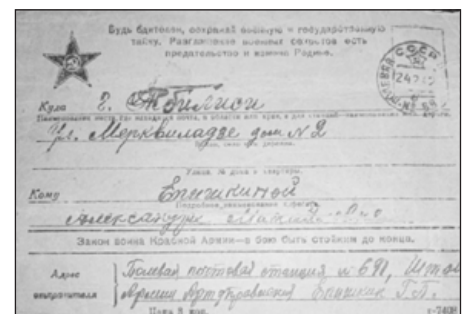 Будь бдителен, сохраняй военную и государственную
тайну. Разглашение военных секретов есть
предательство и измена Родине.
СССР
Куда г. Тбилиси
ул. Мерквиладзе дом № 2
Улица, № дома и квартиры.
Кому Епишкиной
Подробное наименование адресата
Александре
Закон воина Красной Армии—в бою быть стойким до конца.
Адрес отправителя
Полевая почтовая станция № 691, Штаб
Армии Артуправление Епишкин Г.П.
Цена 5 коп.